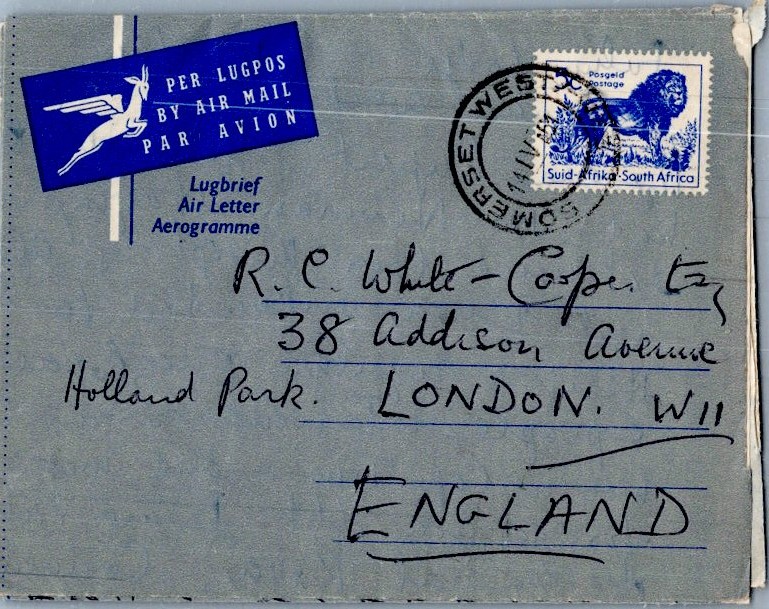 PER LUGPOS
BY AIR MAIL
PAR AVION
Lugbrief
Air Letter
Aerogramme
SOMERSET WEST
5c Posgeld
Postage
Suid-Afrika·South Africa
R. C. White-Cooper Esq
38 Addison Avenue
Holland Park. LONDON. W11
ENGLAND